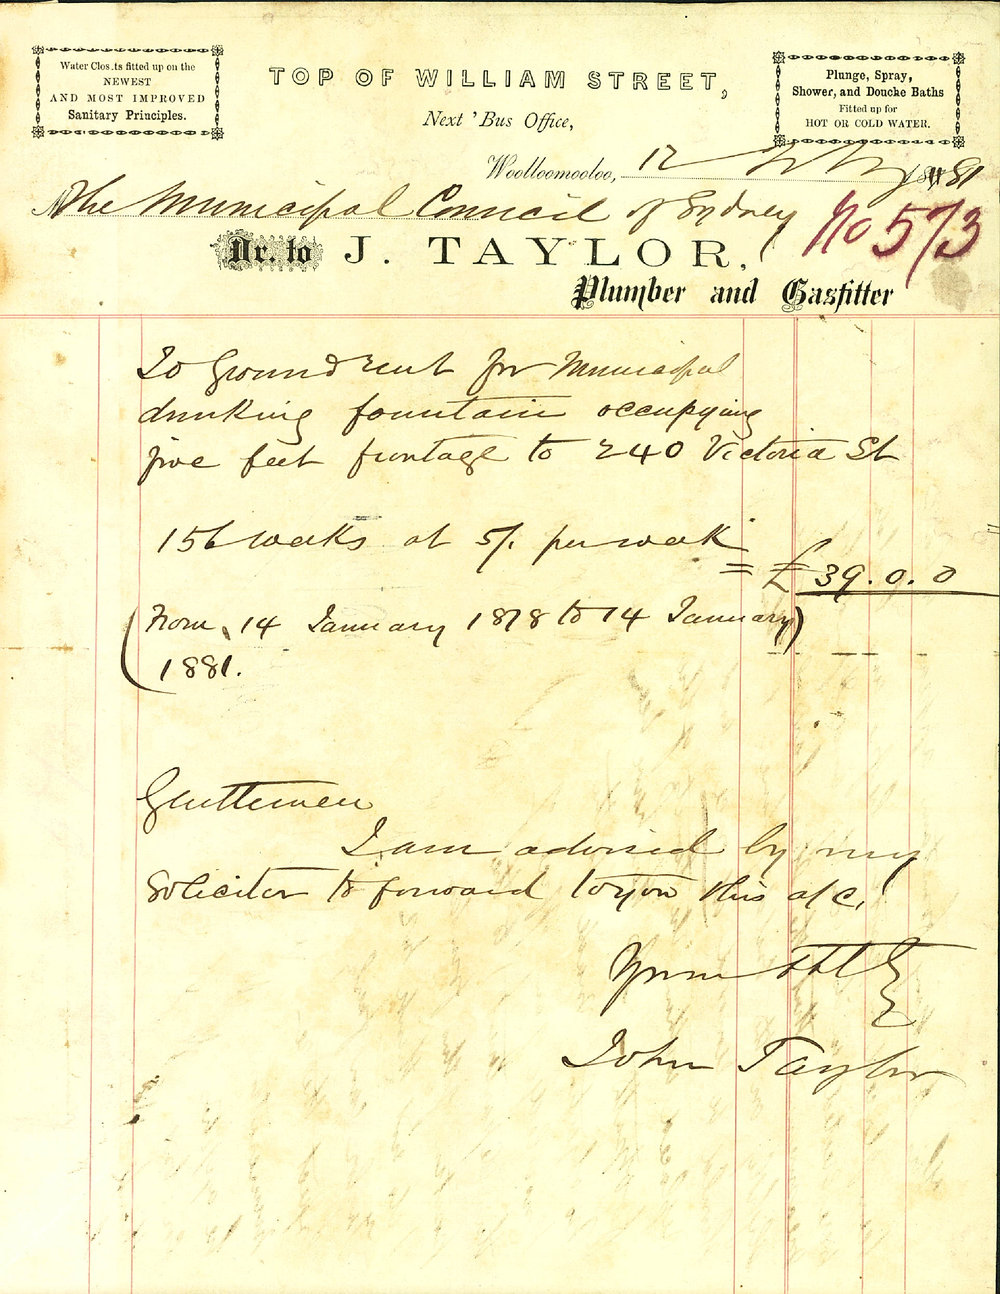 Water Clos.ts fitted up on the
NEWEST
AND MOST IMPROVED
Sanitary Principles.
TOP OF WILLIAM STREET,
Next 'Bus Office,
Plunge, Spray,
Shower, and Doucke Baths
Fitted up for
HOT OR COLD WATER.
Woolloomooloo, 12 1881
The Municipal Council of Sydney
No 573
Dr. to J. TAYLOR,
Plumber and Gasfitter
To Ground rent for Municipal
drinking fountain occupying
five feet frontage to 240 Victoria St
156 weeks at 5/. per week = £39.0.0
(from 14 January 1878 to 14 January)
(1881.
Gentlemen
I am advised by my
Solicitor to forward to you this a/c.
Yours
John Taylor